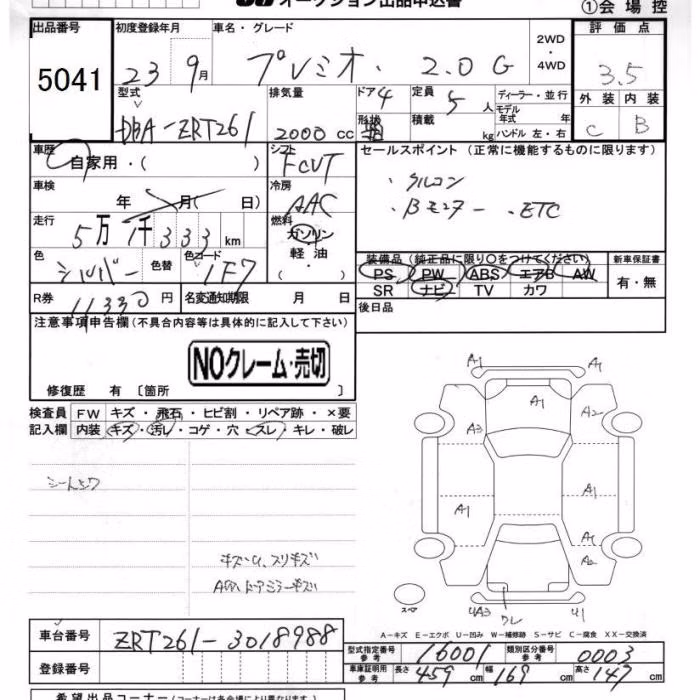 オークション出品申込書
①会場控
出品番号 初度登録年月 車名・グレード 2WD・4WD 評価点
5041 23 9月 プレミオ・ 2.0 G 3.5
型式 排気量 ドア 4 定員 5人 ディーラー・並行 外装 内装
DBA-ZRT261 2000cc 形状 積載 kg モデル年式 年 C B
ハンドル 左・右
車歴 自家用・( ) シフト FCVT セールスポイント(正常に機能するものに限ります)
車検 年 月( 日) 冷房 AAC
・ETC
走行 5万1千333km 燃料 ガソリン・軽油・( )
色 シルバー 色替 色コード 1F7 装備品(純正品に限り○をつけてください) 新車保証書
PS PW ABS エアB AW 有・無
SR ナビ TV カワ
R券 11330円 名変通知期限 月 日 後日品
注意事項申告欄(不具合内容等は具体的に記入して下さい)
NOクレーム・売切
修復歴 有 〔箇所 〕
検査員 FW キズ・飛石・ヒビ割・リペア跡・×要
記入欄 内装 キズ・汚レ・コゲ・穴・スレ・キレ・破レ
A1 A1
A1 A2
A3
A1 A1
A1
A2
スペア 4A3 ワレ U1
A-キズ E-エクボ U-凹み W-補修跡 S-サビ C-腐食 XX-交換済
車台番号 ZRT261-3018988
型式指定番号 参考 16001 類別区分番号 参考 0003
登録番号 車庫証明用 参考 長さ 459cm 幅 169cm 高さ 147cm
希望出品コーナー